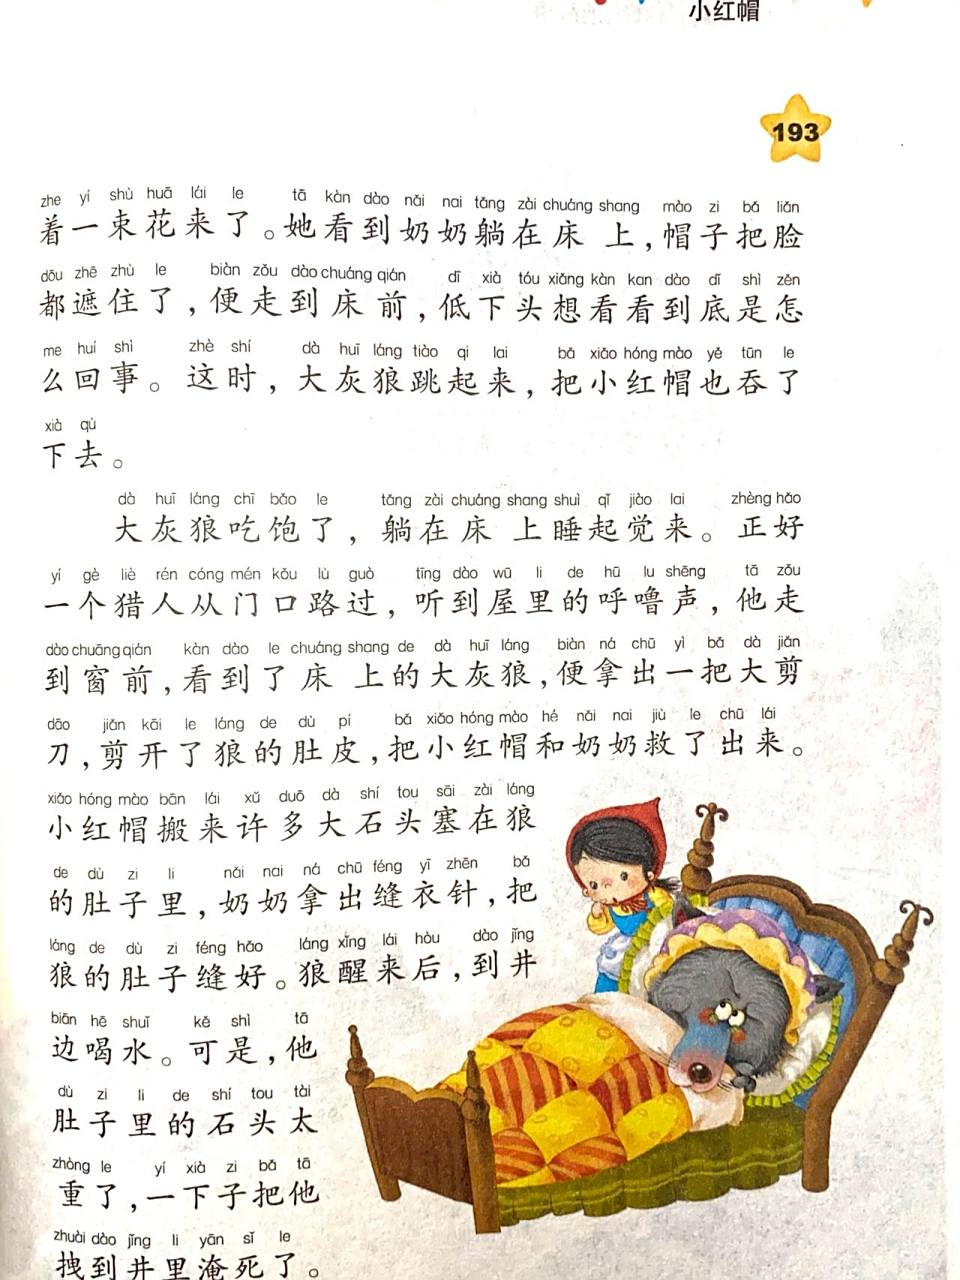 小红帽
193
zhe yí shù huā lái le tā kàn dào nǎi nai tǎng zài chuáng shang mào zi bǎ liǎn
着一束花来了。她看到奶奶躺在床上，帽子把脸
dōu zhē zhù le biàn zǒu dào chuáng qián dī xià tóu xiǎng kàn kan dào dǐ shì zěn
都遮住了，便走到床前，低下头想看看到底是怎
me huí shì zhè shí dà huī láng tiào qi lai bǎ xiǎo hóng mào yě tūn le
么回事。这时，大灰狼跳起来，把小红帽也吞了
xià qù
下去。
dà huī láng chī bǎo le tǎng zài chuáng shang shuì qǐ jiào lai zhèng hǎo
大灰狼吃饱了，躺在床上睡起觉来。正好
yí gè liè rén cóng mén kǒu lù guò tīng dào wū li de hū lu shēng tā zǒu
一个猎人从门口路过，听到屋里的呼噜声，他走
dào chuāng qián kàn dào le chuáng shang de dà huī láng biàn ná chū yì bǎ dà jiǎn
到窗前，看到了床上的大灰狼，便拿出一把大剪
dāo jiǎn kāi le láng de dù pí bǎ xiǎo hóng mào hé nǎi nai jiù le chū lái
刀，剪开了狼的肚皮，把小红帽和奶奶救了出来。
xiǎo hóng mào bān lái xǔ duō dà shí tou sāi zài láng
小红帽搬来许多大石头塞在狼
de dù zi li nǎi nai ná chū féng yī zhēn bǎ
的肚子里，奶奶拿出缝衣针，把
láng de dù zi féng hǎo láng xǐng lái hòu dào jǐng
狼的肚子缝好。狼醒来后，到井
biān hē shuǐ kě shì tā
边喝水。可是，他
dù zi li de shí tou tài
肚子里的石头太
zhòng le yí xià zi bǎ tā
重了，一下子把他
zhuài dào jǐng li yān sǐ le
拽到井里淹死了。